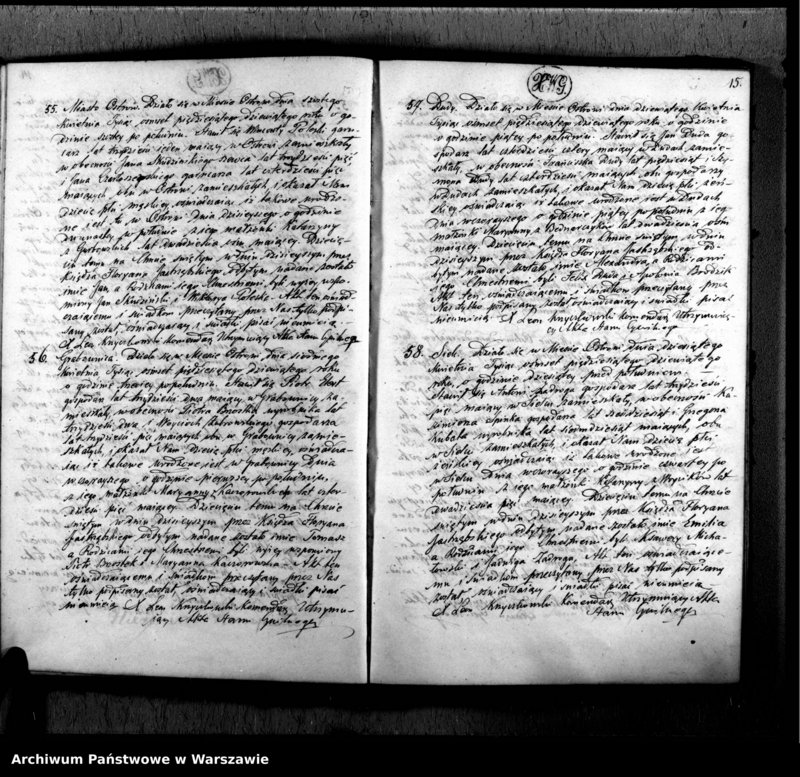 55. Miasto Ostrów. Działo się w Mieście Ostrowi dnia szóstego
Kwietnia Tysiąc ośmset pięćdziesiątego dziewiątego roku o go-
dzinie szóstej po południu. Stawił się Wincenty gar-
lat trzydzieści siedem mający w Ostrowi zamieszkały
w obecności Jana szewca lat trzydzieści pięć
i Jana garncarza lat czterdzieści pięć
mających, obu w Ostrowi zamieszkałych, i okazał Nam
dziecię płci męskiej, oświadczając iż takowe urodzo-
ne jest, tu w Ostrowi Dnia dzisiejszego o godzinie
po północy z jego małżonki Katarzyny
z lat dwadzieścia ośm mającej. Dziecię-
ciu temu na Chrzcie świętym w dniu dzisiejszym przez
Księdza Floryana Jastrzębskiego odbytym nadane zostało
imie Jan, a Rodzicami jego Chrzestnemi byli wyżej wspo-
mniony Jan i Akt ten oświad-
czającemu i świadkom przeczytany przez Nas tylko podpi-
sany został, oświadczający i świadki pisać nieumieją
X Leon Knyszkowski Komendarz Utrzymujący Akta Stanu Cywilnego
56. Grabownica. Działo się w Mieście Ostrowi dnia siódmego
Kwietnia Tysiąc ośmset pięćdziesiątego dziewiątego roku
o godzinie trzeciej popołudniu. Stawił się Piotr
gospodarz lat trzydzieści dwa mający w Grabownicy za-
mieszkały, w obecności Piotra Brostka wyrobnika lat
trzydzieści dwa i Wojciecha gospodarza
lat trzydzieści pięć mających obu w Grabownicy zamie-
szkałych i okazał Nam Dziecię płci męskiej, oświadcza-
jąc iż takowe urodzone jest w Grabownicy Dnia
wczorajszego o godzinie pierwszej po południu,
z jego małżonki Maryanny z lat czter-
dzieści pięć mającej. Dziecięciu temu na Chrzcie
świętym w dniu dzisiejszym przez Księdza Floryana
Jastrzębskiego odbytym nadane zostało imie Tomasz
a Rodzicami jego Chrzestnemi byli wyżej wspomniony
Piotr Brostek i Maryanna Akt ten
oświadczającemu i świadkom przeczytany przez Nas
tylko podpisany został, oświadczający i świadki pisać
nieumieją X Leon Knyszkowski Komendarz Utrzymu-
jący Akta Stanu Cywilnego
15.
57. Dudy. Działo się w Mieście Ostrowi dnia dziewiątego Kwietnia
Tysiąc ośmset pięćdziesiątego dziewiątego roku, o godzinie
o godzinie piątej po południu. Stawił się Jan Duda go-
spodarz lat czterdzieści cztery mający w Dudach zamie-
szkały, w obecności Franciszka Dudy lat pięćdziesiąt i Szy-
mona Dudy lat czterdzieści mających, obu gospodarzy
w Dudach zamieszkałych, i okazał Nam dziecię płci żeń-
skiej oświadczając iż takowe urodzone jest w Dudach
Dnia wczorajszego o godzinie piątej po południu z jego
małżonki Maryanny z Bednarczyków lat dwadzieścia ośm
mającej. Dziecięciu temu na Chrzcie świętym w dniu
dzisiejszym przez Księdza Floryana Jastrzębskiego od-
bytym nadane zostało imie Alexandra a Rodzicami
jego Chrzestnemi byli Duda i Apolonia Brodzik
Akt ten, oświadczającemu i świadkom przeczytany przez
Nas tylko podpisany został oświadczający i świadki pisać
nieumieją. X Leon Knyszkowski Komendarz Utrzymują-
cy Akta Stanu Cywilnego
58. Siel. Działo się w Mieście Ostrowi Dnia dziewiątego
Kwietnia Tysiąc ośmset pięćdziesiątego dziewiątego
roku, o godzinie dziewiątej przed południem.
Stawił się Antoni Zadroga gospodarz lat trzydzieści
pięć mający w Sielu zamieszkały, w obecności Ka-
gospodarza lat sześćdziesiąt i Grzegorza
Kubata wyrobnika lat siedmdziesiąt mających, obu
w Sielu zamieszkałych, i okazał Nam dziecię płci
żeńskiej, oświadczając iż takowe urodzone jest
w Sielu Dnia wczorajszego o godzinie czwartej po
południu z jego małżonki Katarzyny z Wójcików lat
dwadzieścia pięć mającej. Dziecięciu temu na Chrzcie
świętym w dniu dzisiejszym przez Księdza Floryana
Jastrzębskiego odbytym nadane zostało imie Emilia
a Rodzicami jego Chrzestnemi byli Ksawery Micha-
łowski i Jadwiga Zadroga. Akt ten oświadczające-
mu i świadkom przeczytany, przez Nas tylko podpisany
został oświadczający i świadki pisać nieumieją
X Leon Knyszkowski Komendarz Utrzymujący Akta
Stanu Cywilnego
Archiwum Państwowe w Warszawie